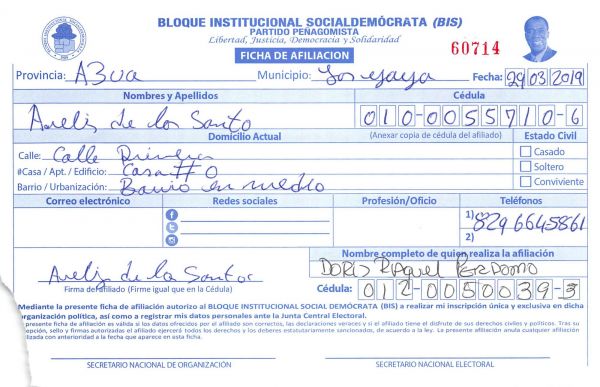 BLOQUE INSTITUCIONAL SOCIALDEMÓCRATA (BIS)
PARTIDO PEÑAGOMISTA
Libertad, Justicia, Democracia y Solidaridad
FICHA DE AFILIACION
60714
Provincia: AZUA Municipio: Los Yayas Fecha: 29/03/2019
Nombres y Apellidos Cédula
Arelis de los Santo 010-0055710-6
Domicilio Actual (Anexar copia de cédula del afiliado) Estado Civil
Calle: Calle Primera Casado
#Casa / Apt. / Edificio: Casa # 0 Soltero
Barrio / Urbanización: Barrio en medio Conviviente
Correo electrónico Redes sociales Profesión/Oficio Teléfonos
1) 829 6645861
2)
Nombre completo de quien realiza la afiliación
DORIS RAQUEL PERDOMO
Arelis de la Santos
Firma del afiliado (Firme igual que en la Cédula) Cédula: 012-0050039-3
Mediante la presente ficha de afiliación autorizo al BLOQUE INSTITUCIONAL SOCIAL DEMÓCRATA (BIS) a realizar mi inscripción única y exclusiva en dicha
organización política, así como a registrar mis datos personales ante la Junta Central Electoral.
presente ficha de afiliación es válida si los datos ofrecidos por el afiliado son correctos, las declaraciones veraces y si el afiliado tiene el disfrute de sus derechos civiles y políticos. Tras su
sello y firmas autorizadas el afiliado ejercerá todos los derechos y los deberes estatutariamente sancionados, de acuerdo a la ley. La presente afiliación anula cualquier afiliación
realizada con anterioridad a la fecha que aparece en esta ficha.
SECRETARIO NACIONAL DE ORGANIZACIÓN SECRETARIO NACIONAL ELECTORAL